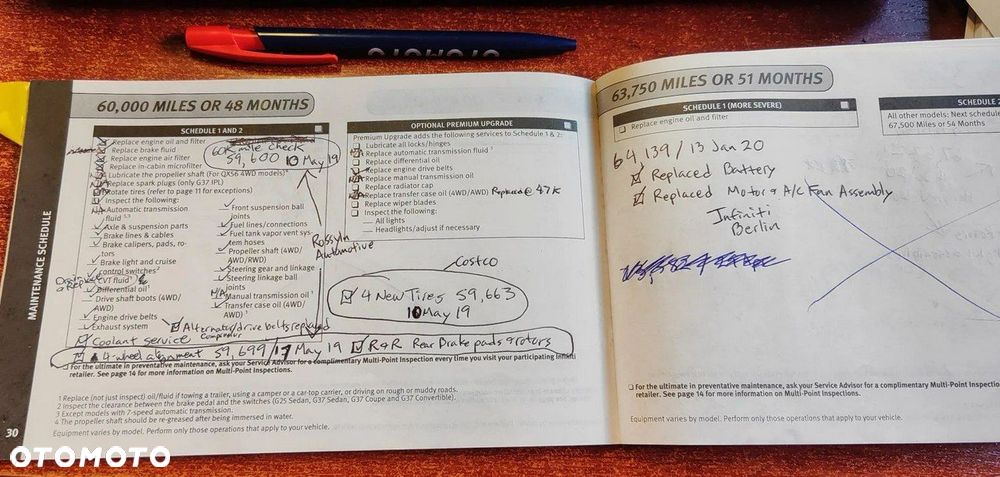 OTOMOTO
60,000 MILES OR 48 MONTHS
SCHEDULE 1 AND 2
Replace engine oil and filter
Replace brake fluid
Replace engine air filter
Replace in-cabin microfilter
Lubricate the propeller shaft (For QX56 4WD models)⁴
Replace spark plugs (only G37 IPL)
Rotate tires (refer to page 11 for exceptions)
Inspect the following:
N/A Automatic transmission
fluid
Axle & suspension parts
Brake lines & cables
Brake calipers, pads, ro-
tors
Brake light and cruise
control switches²
CVT fluid¹
Differential oil¹
Drive shaft boots (4WD/
AWD)
Engine drive belts
Exhaust system
Front suspension ball
joints
Fuel lines/connections
Fuel tank vapor vent sys-
tem hoses
Propeller shaft (4WD/
AWD/RWD)
Steering gear and linkage
Steering linkage ball
joints
N/A Manual transmission oil¹
Transfer case oil (4WD/
AWD)¹
60K mile check
59,600 10 May 19
Rosslyn
Automotive
Alternator/drive belts replaced
Coolant service
4-wheel alignment 59,699/17 May 19 R&R Rear Brake pads & rotors
OPTIONAL PREMIUM UPGRADE
Premium Upgrade adds the following services to Schedule 1 & 2:
Lubricate all locks/hinges
N/A Replace automatic transmission fluid³
Replace differential oil
Replace engine drive belts
N/A Replace manual transmission oil
Replace radiator cap
Replace transfer case oil (4WD/AWD) Replaced @ 47K
Replace wiper blades
Inspect the following:
All lights
Headlights/adjust if necessary
Costco
4 New Tires 59,663
10 May 19
For the ultimate in preventative maintenance, ask your Service Advisor for a complimentary Multi-Point Inspection every time you visit your participating Infiniti
retailer. See page 14 for more information on Multi-Point Inspections.
1 Replace (not just inspect) oil/fluid if towing a trailer, using a camper or a car-top carrier, or driving on rough or muddy roads.
2 Inspect the clearance between the brake pedal and the switches (G25 Sedan, G37 Sedan, G37 Coupe and G37 Convertible).
3 Except models with 7-speed automatic transmission.
4 The propeller shaft should be re-greased after being immersed in water.
Equipment varies by model. Perform only those operations that apply to your vehicle.
MAINTENANCE SCHEDULE
30
63,750 MILES OR 51 MONTHS
SCHEDULE 1 (MORE SEVERE)
Replace engine oil and filter
SCHEDULE
All other models: Next schedule
67,500 Miles or 54 Months
64,139/13 Jan 20
Replaced Battery
Replaced Motor & A/C Fan Assembly
Infiniti
Berlin
For the ultimate in preventative maintenance, ask your Service Advisor for a complimentary Multi-Point Inspection
retailer. See page 14 for more information on Multi-Point Inspections.
Equipment varies by model. Perform only those operations that apply to your vehicle.
OTOMOTO